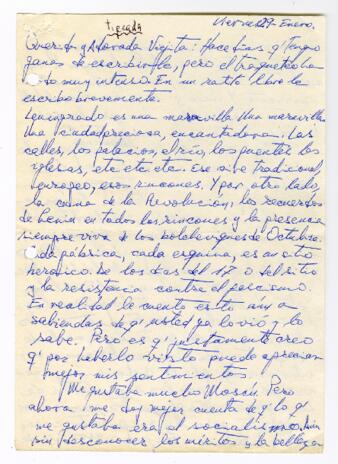 tierada
Viernes 29 - Enero.
Querida y Adorada Viejita: Hace días q' tengo
ganas de escribirle, pero el traqueteo ha
sido muy intenso. En un ratito libre le
escribo brevemente.
Leningrado es una maravilla. Una maravilla
Una ciudad preciosa, encantadora. Las
calles, los palacios, el río, los puentes las
iglesias, etc etc etc. Ese aire tradicional,
europeo, esos rincones. Y por otro lado,
la cuna de la Revolución, los recuerdos
de Lenin en todos los rincones y la presencia
siempre viva de los bolcheviques de Octubre.
Cada fábrica, cada esquina, es un sitio
heroico. De los días del 17 o del sitio
y la resistencia contra el fascismo.
En realidad le cuento esto aún a
sabiendas de q' usted ya lo vió y lo
sabe. Pero es q' justamente creo
q' por haberlo visto puede apreciar
mejor mis sentimientos.
Me gustaba mucho Moscú. Pero
ahora me doy mejor cuenta de q' lo q'
me gustaba era el socialismo. Aún
sin desconocer los méritos y la belleza